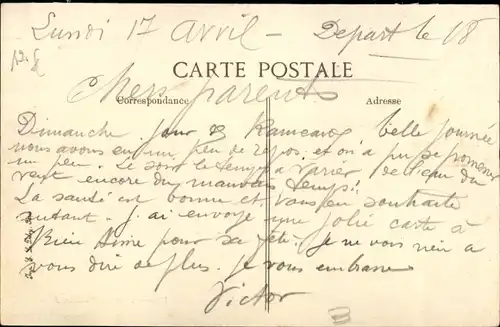 Lundi 17 Avril - Depart le 18
CARTE POSTALE
Correspondance Adresse
Chers parents
Dimanche jour des Rameaux belle journée
nous avons eu un peu de repos et on a pu se promener
un peu. Le soir le temps a varier
vent encore du mauvais temps.
La santé est bonne et vous en souhaite
autant. j'ai envoyé une jolie carte à
Bien Aimé pour sa fête. je ne vous rien a
vous dire de plus. je vous embrasse
Victor